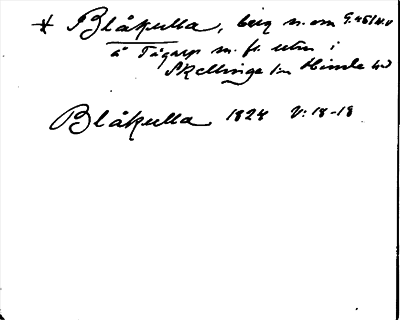 * Blåkulla, berg n. om G. 45/
å Tågarp m. fl. utm i
Skellinge sn Himle hd
Blåkulla 1828 V: 18-19